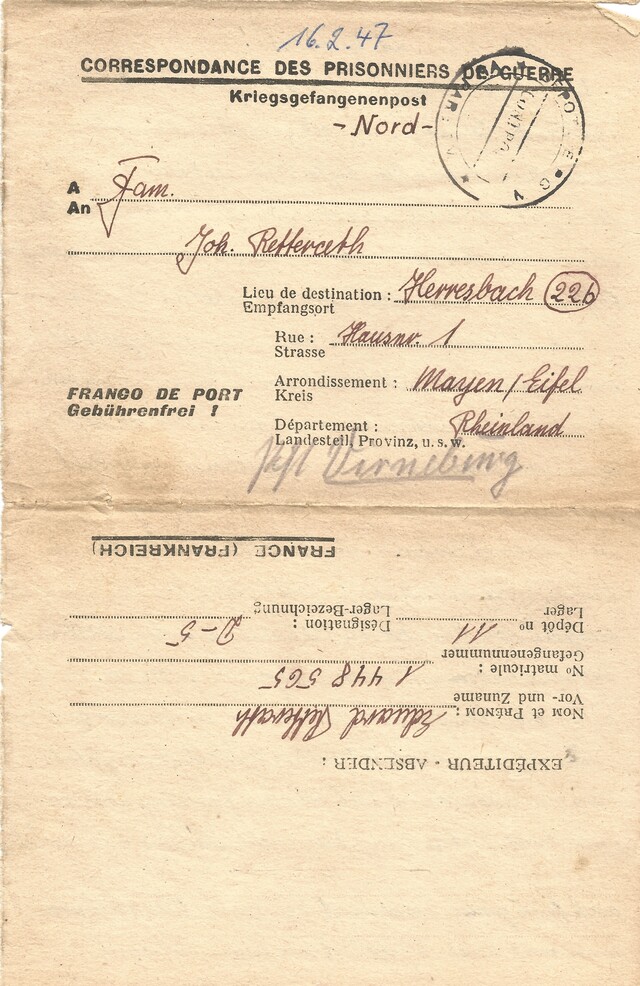 16.2.47
CORRESPONDANCE DES PRISONNIERS DE GUERRE
Kriegsgefangenenpost
-Nord-
DEPOT P G
A Fam.
An
Joh. Retterath
Lieu de destination : Herresbach 22b
Empfangsort
Rue : Hausnr. 1
Strasse
FRANCO DE PORT
Gebührenfrei !
Arrondissement : Mayen/Eifel
Kreis
Département : Rheinland
Landesteil, Provinz, u. s. w.
Virneburg
EXPÉDITEUR - ABSENDER :
NOM ET PRÉNOM : Eduard Retterath
Vor- und Zuname
No matricule : 1 448 565
Gefangenennummer
Dépôt no 11 Désignation : D-5
Lager Lager-Bezeichnung
FRANCE (FRANKREICH)